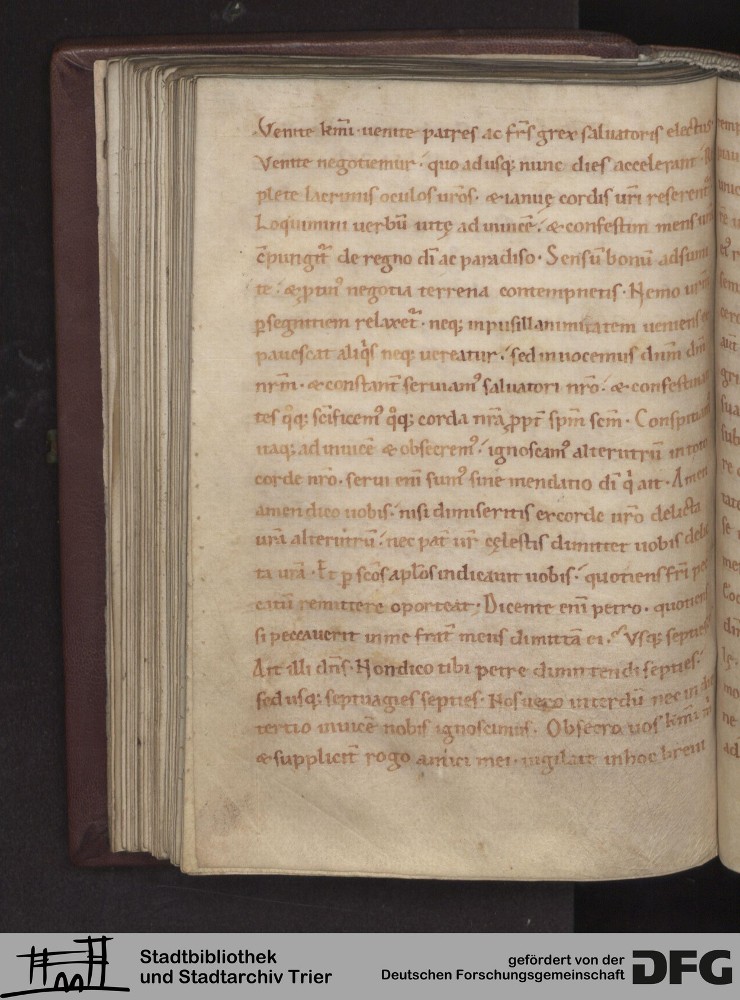 Venite km̄i · uenite patres ac fr̄s grex saluatoris electus
Venite negotiemur · quo ad usq; nunc dies accelerant
plete lacrimis oculos ur̄os · & ianuę cordis ur̄i reserent
Loquimini uerbū uitę ad inuicē · & confestim mens
c̄pungit᷑ de regno dī ac paradiso · Sensū bonū adsumi
te · & negotia terrena contempnetis · Nemo
segnitiem relaxet᷑ · neq; in pusillanimitatem ueniens
pauescat aliqͥs neq; uereatur · sed inuocemus dn̄m dm̄
nr̄m · & constant᷑ seruiamꝰ saluatori nr̄o · & confestinan
tes corda nr̄a spm̄ scm̄ · Conspitiam
itaq; ad inuicē & obsecremꝰ · ignoscamꝰ alterutrū in toto
corde nr̄o · serui eni᷑ sumꝰ sine mendatio dī qͥ ait · Amen
amen dico uobis · nisi dimiseritis ex corde ur̄o delicta
ur̄a alterutrū · nec pat᷑ ur̄ cęlestis dimittet uobis debi
ta ur̄a · Et ꝑ scōs aplōs indicauit uobis · quotiens fr̄i pec
catū remittere oporteat · Dicente eni᷑ petro · quotiens
si peccauerit in me frat᷑ meus dimittā ei · Vsq; septies
Ait illi dn̄s · Non dico tibi petre dimittendi septies ·
sed usq; septuagies septies · Nos uero interdū nec
tertio inuicē nobis ignoscimus · Obsecro uos km̄i
& supplicit᷑ rogo amici mei · uigilate in hoc breui
Stadtbibliothek
und Stadtarchiv Trier
gefördert von der
Deutschen Forschungsgemeinschaft
DFG